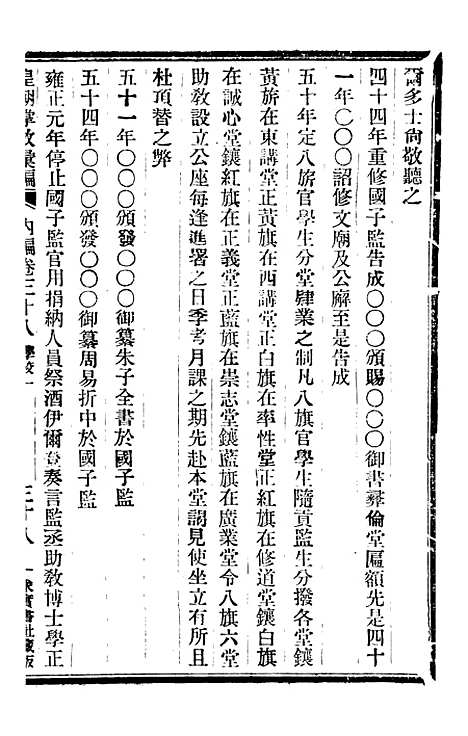 爾多士尙敬聽之
四十四年重修國子監告成〇〇〇頒賜〇〇〇御書彝倫堂匾額先是四十
一年〇〇〇詔修文廟及公廨至是告成
五十年定八旂官學生分堂肄業之制凡八旗官學生隨貢監生分撥各堂鑲
黃旂在東講堂正黃旗在西講堂正白旗在率性堂正紅旗在修道堂鑲白旗
在誠心堂鑲紅旗在正義堂正藍旗在崇志堂鑲藍旗在廣業堂令八旗六堂
助敎設立公座每逢進署之日季考月課之期先赴本堂謁見使坐立有所且
杜頂替之弊
五十一年〇〇〇頒發〇〇〇御纂朱子全書於國子監
五十四年〇〇〇頒發〇〇〇御纂周易折中於國子監
雍正元年停止國子監官用捐納人員祭酒伊爾登奏言監丞助敎博士學正
皇朝掌故彙編 內編卷三十八 學校一 三十八 求實書社藏版